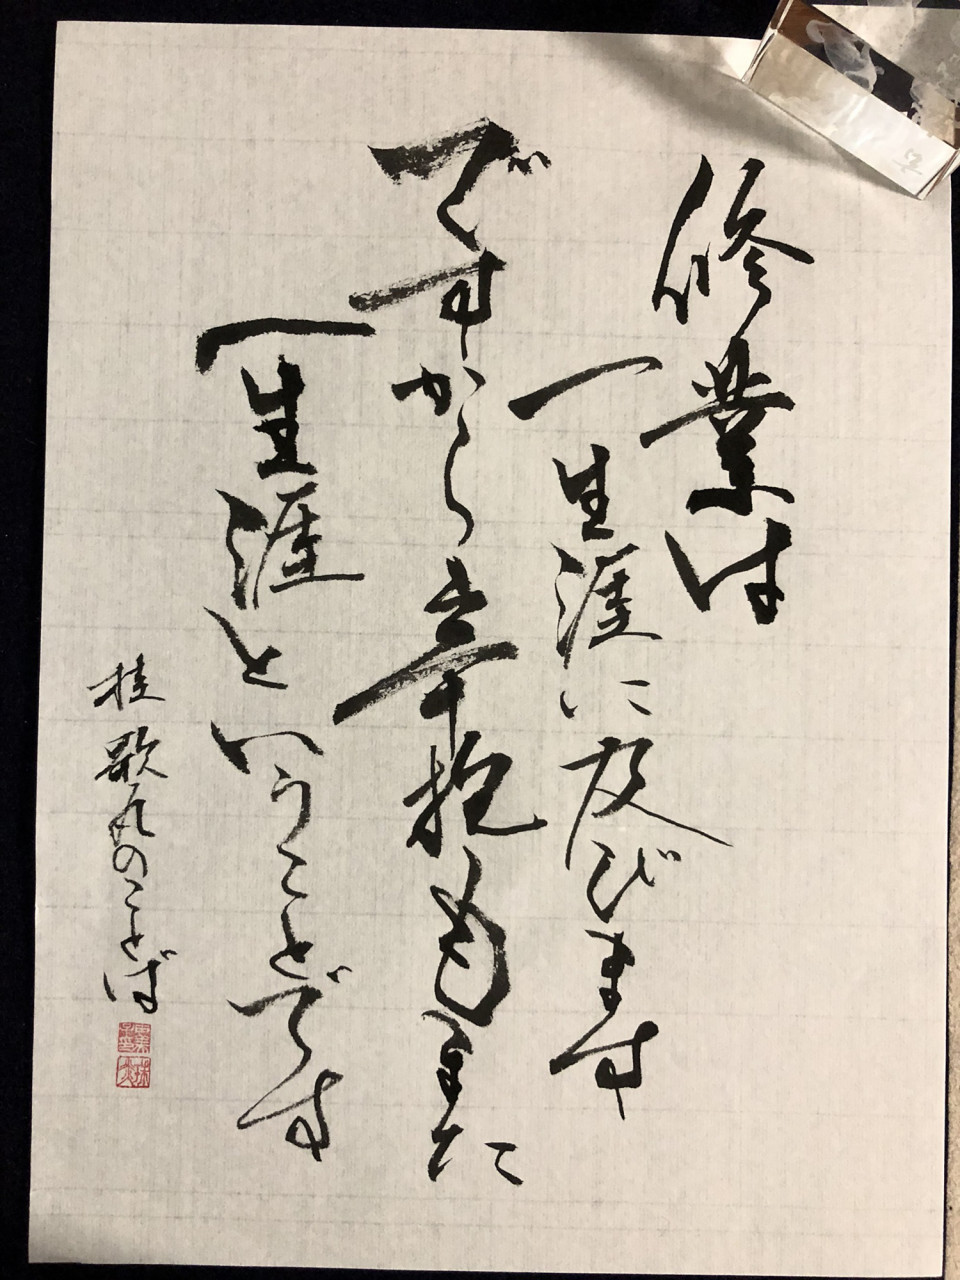 修業は
一生涯に及びます
ですから辛抱もまた
一生涯ということです
桂歌丸のことば